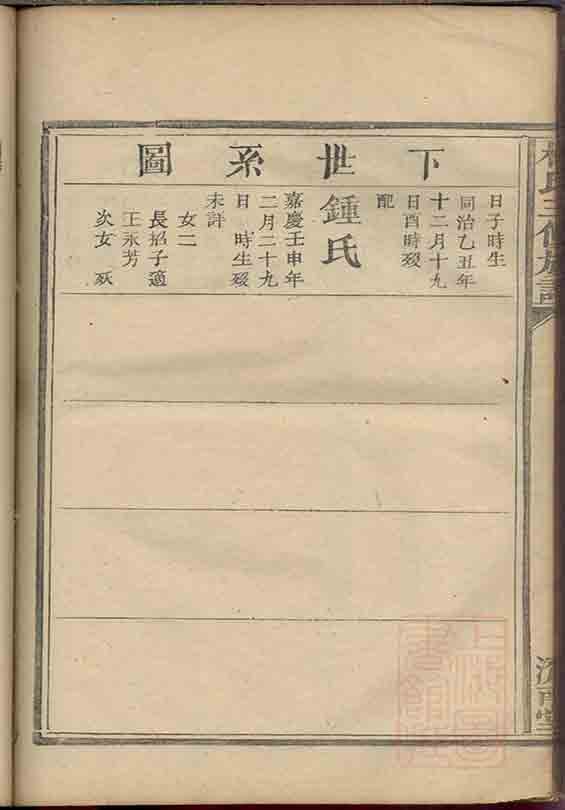 下世系圖
日子時生
同治乙丑年
十二月十九
日酉時歿
配
鍾氏
嘉慶壬申年
二月二十九
日 時生歿
未詳
女二
長招子適
王永芳
次女歿
氏三修族譜
堂